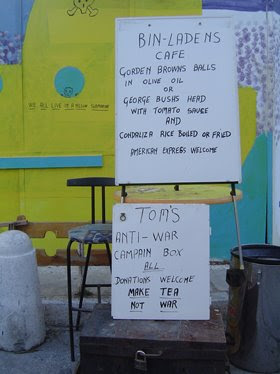 WE ALL LIVE IN A YELLOW SUBMARINE
BIN-LADENS
CAFE
GORDEN BROWNS BALLS
IN OLIVE OIL
OR
GEORGE BUSHS HEAD
WITH TOMATO SAUCE
AND
CONDALIZA RICE BOILED OR FRIED
AMERICAN EXPRESS WELCOME
TOM'S
ANTI-WAR
CAMPAIN BOX
ALL
DONATIONS WELCOME
MAKE TEA
NOT WAR